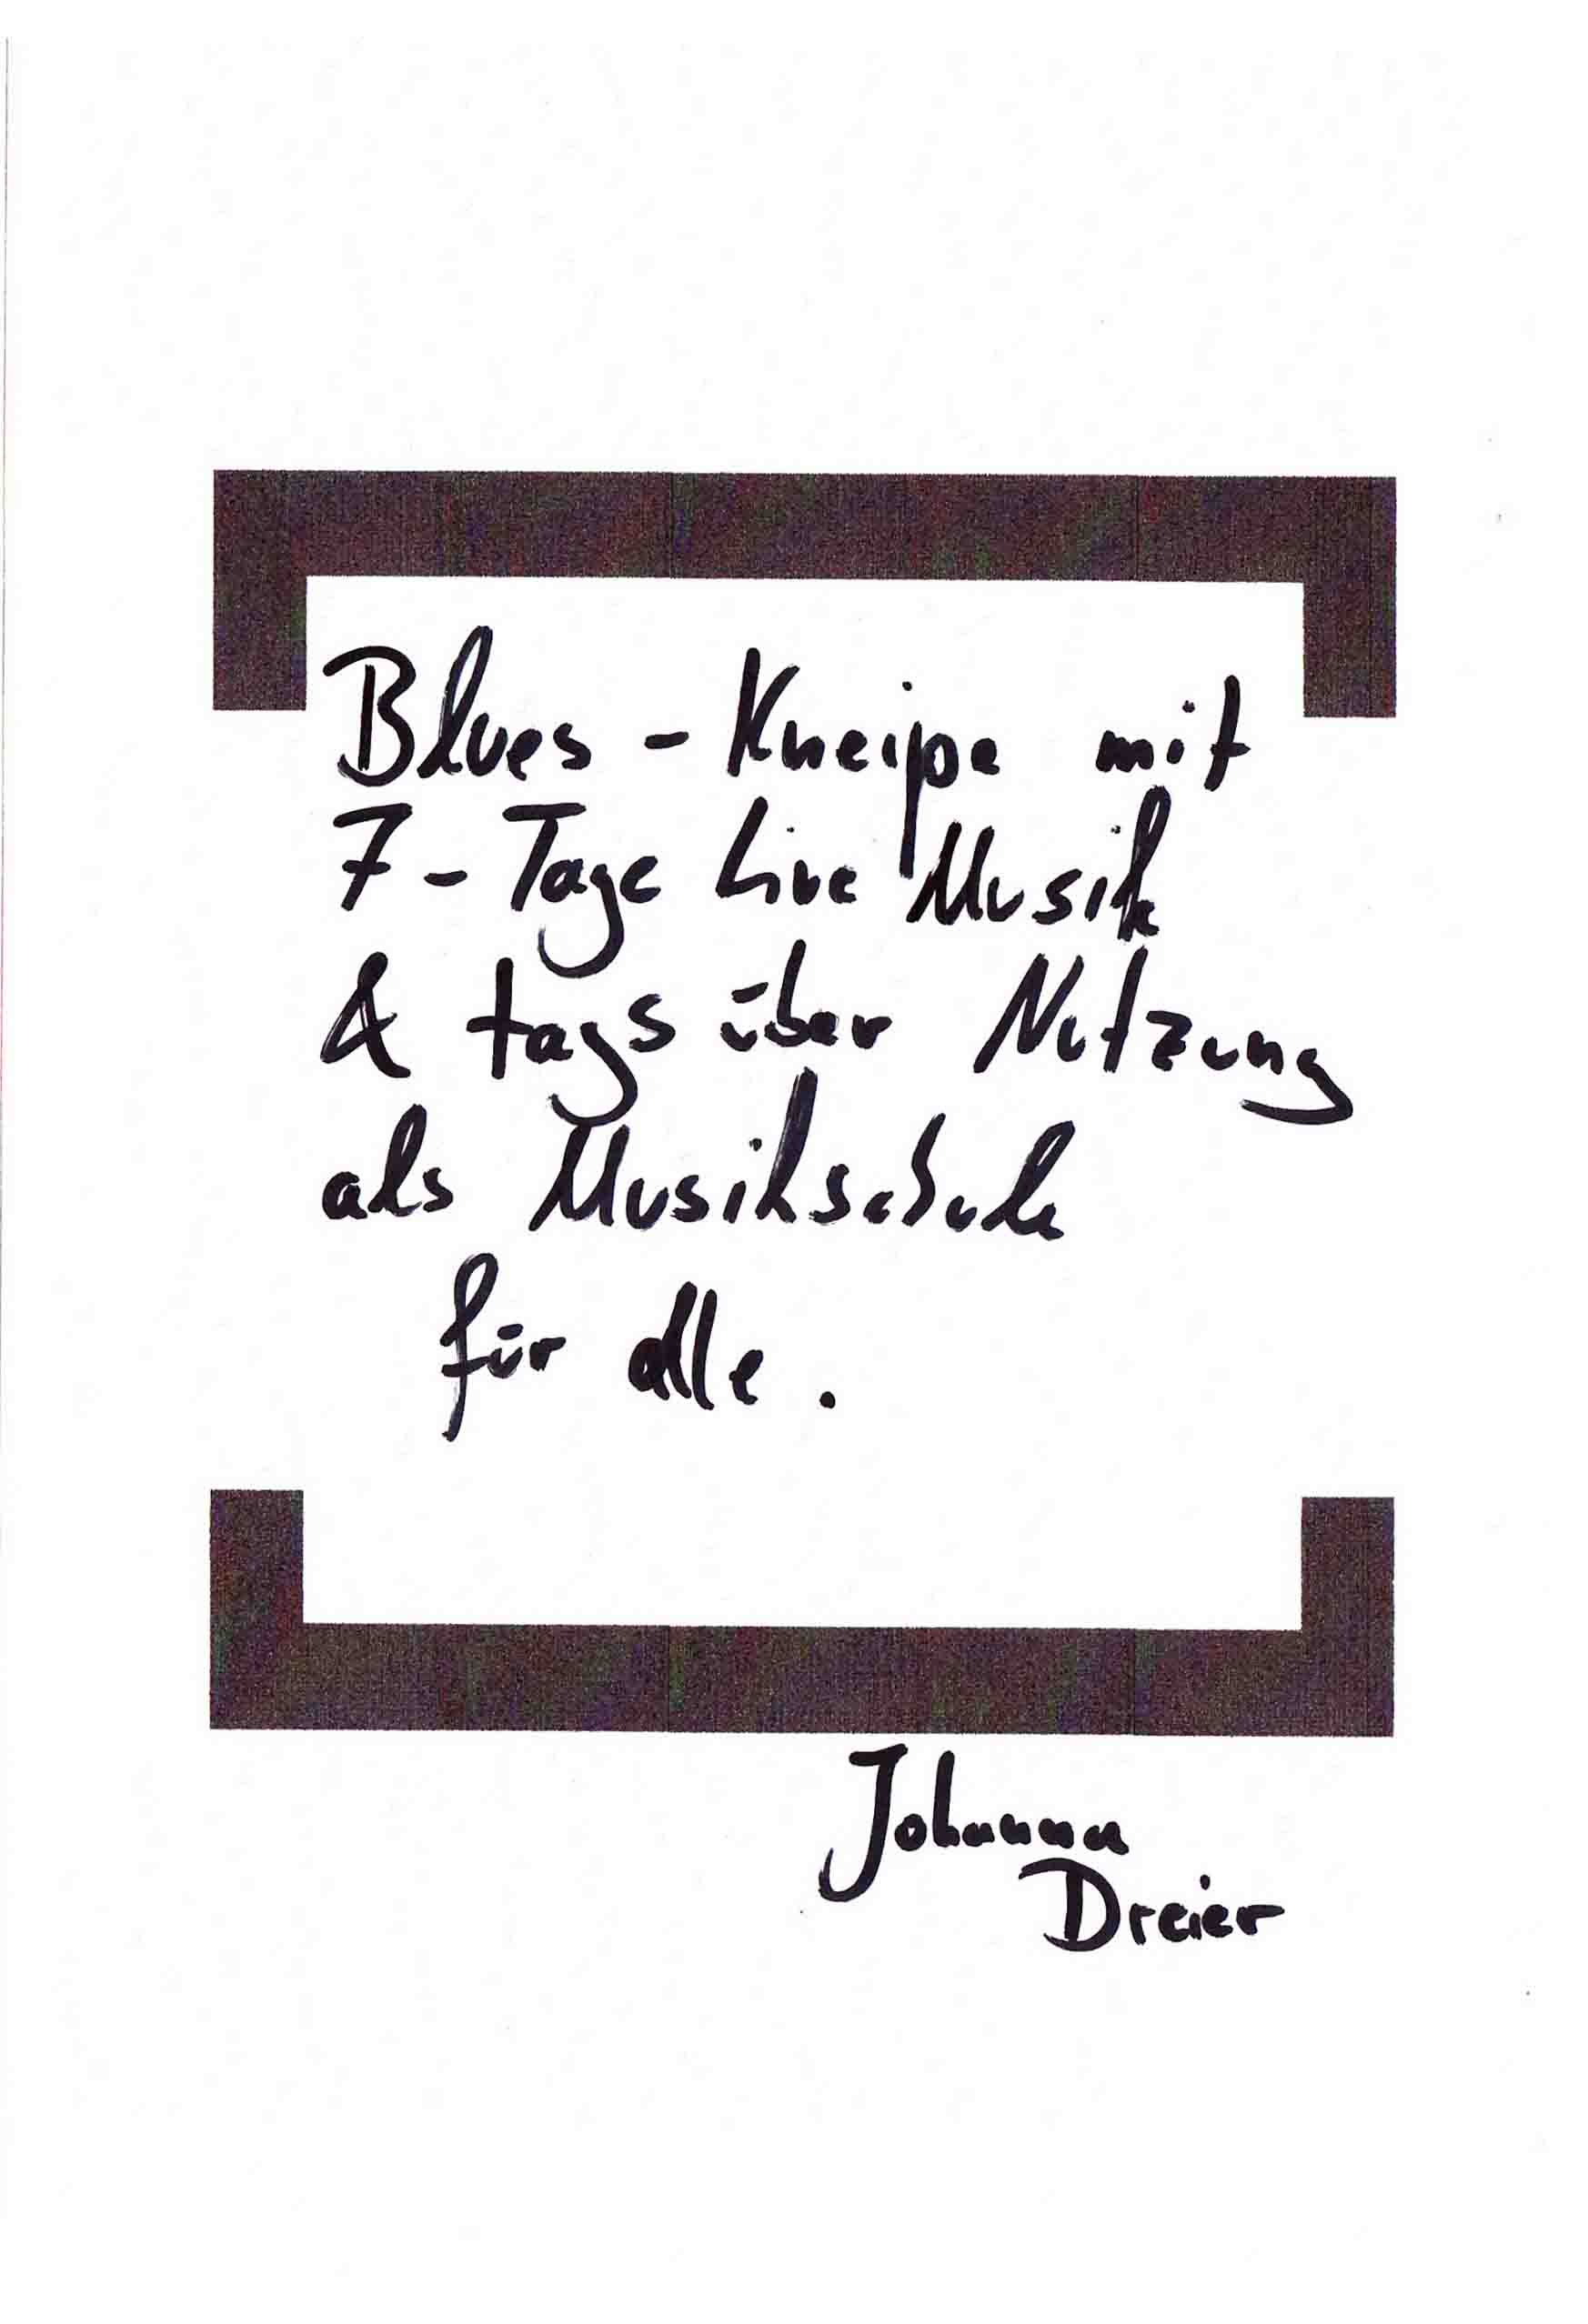 Blues - Kneipe mit
7 - Tage Live Musik
& tags über Nutzung
als Musikschule
für alle .
Johanna
Dreier